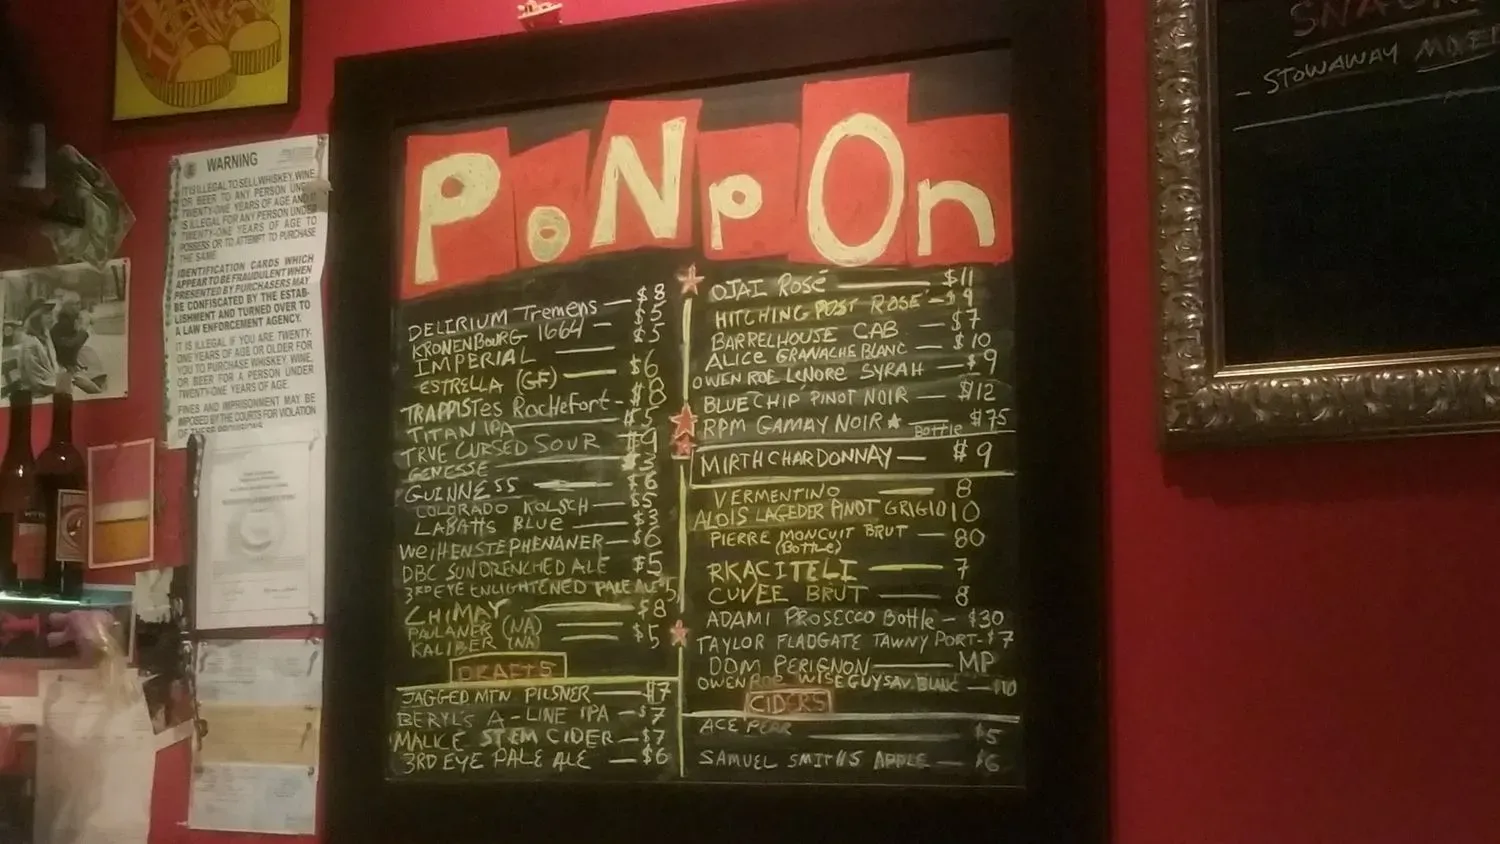 WARNING
IT IS ILLEGAL TO SELL WHISKEY, WINE
OR BEER TO ANY PERSON UNDER
TWENTY-ONE YEARS OF AGE AND IT
IS ILLEGAL FOR ANY PERSON UNDER
TWENTY-ONE YEARS OF AGE TO
POSSESS OR TO ATTEMPT TO PURCHASE
THE SAME.
IDENTIFICATION CARDS WHICH
APPEAR TO BE FRAUDULENT WHEN
PRESENTED BY PURCHASERS MAY
BE CONFISCATED BY THE ESTAB-
LISHMENT AND TURNED OVER TO
A LAW ENFORCEMENT AGENCY.
IT IS ILLEGAL IF YOU ARE TWENTY-
ONE YEARS OF AGE OR OLDER FOR
YOU TO PURCHASE WHISKEY, WINE,
OR BEER FOR A PERSON UNDER
TWENTY-ONE YEARS OF AGE.
FINES AND IMPRISONMENT MAY BE
IMPOSED BY THE COURTS FOR VIOLATION
OF THESE PROVISIONS
PoNpOn
DELIRIUM Tremens — $8
KRONENBOURG 1664 — $5
IMPERIAL — $5
ESTRELLA (GF) — $6
TRAPPISTES ROCHEFORT - $8
TITAN IPA $5
TRVE CURSED SOUR $9
GENESSE — $3
GUINNESS — $6
COLORADO KOLSCH — $5
LABATTS BLUE — $3
WEIHENSTEPHENANER — $6
DBC SUNDRENCHED ALE $5
3RD EYE ENLIGHTENED PALE ALE $5
CHIMAY — $8
PAULANER (NA) —
KALIBER (NA) — $5
DRAFTS
JAGGED MTN PILSNER — $7
BERYL'S A-LINE IPA — $7
MALICE STEM CIDER — $7
3RD EYE PALE ALE — $6
OJAI ROSÉ — $11
HITCHING POST ROSE - $9
BARRELHOUSE CAB — $7
ALICE GRANACHE BLANC — $10
OWEN ROE LENORE SYRAH — $9
BLUE CHIP PINOT NOIR — $12
RPM GAMAY NOIR ★ Bottle $75
MIRTH CHARDONNAY — $9
VERMENTINO — 8
ALOIS LAGEDER PINOT GRIGIO 10
PIERRE MONCUIT BRUT — 80
(Bottle)
RKACITELI — 7
CUVEE BRUT — 8
ADAMI PROSECCO Bottle - $30
TAYLOR FLADGATE TAWNY PORT - $7
DOM PERIGNON — MP
OWEN ROE WISEGUY SAV. BLANC — $10
CIDERS
ACE PEAR $5
SAMUEL SMITHS APPLE — $6
- STOWAWAY